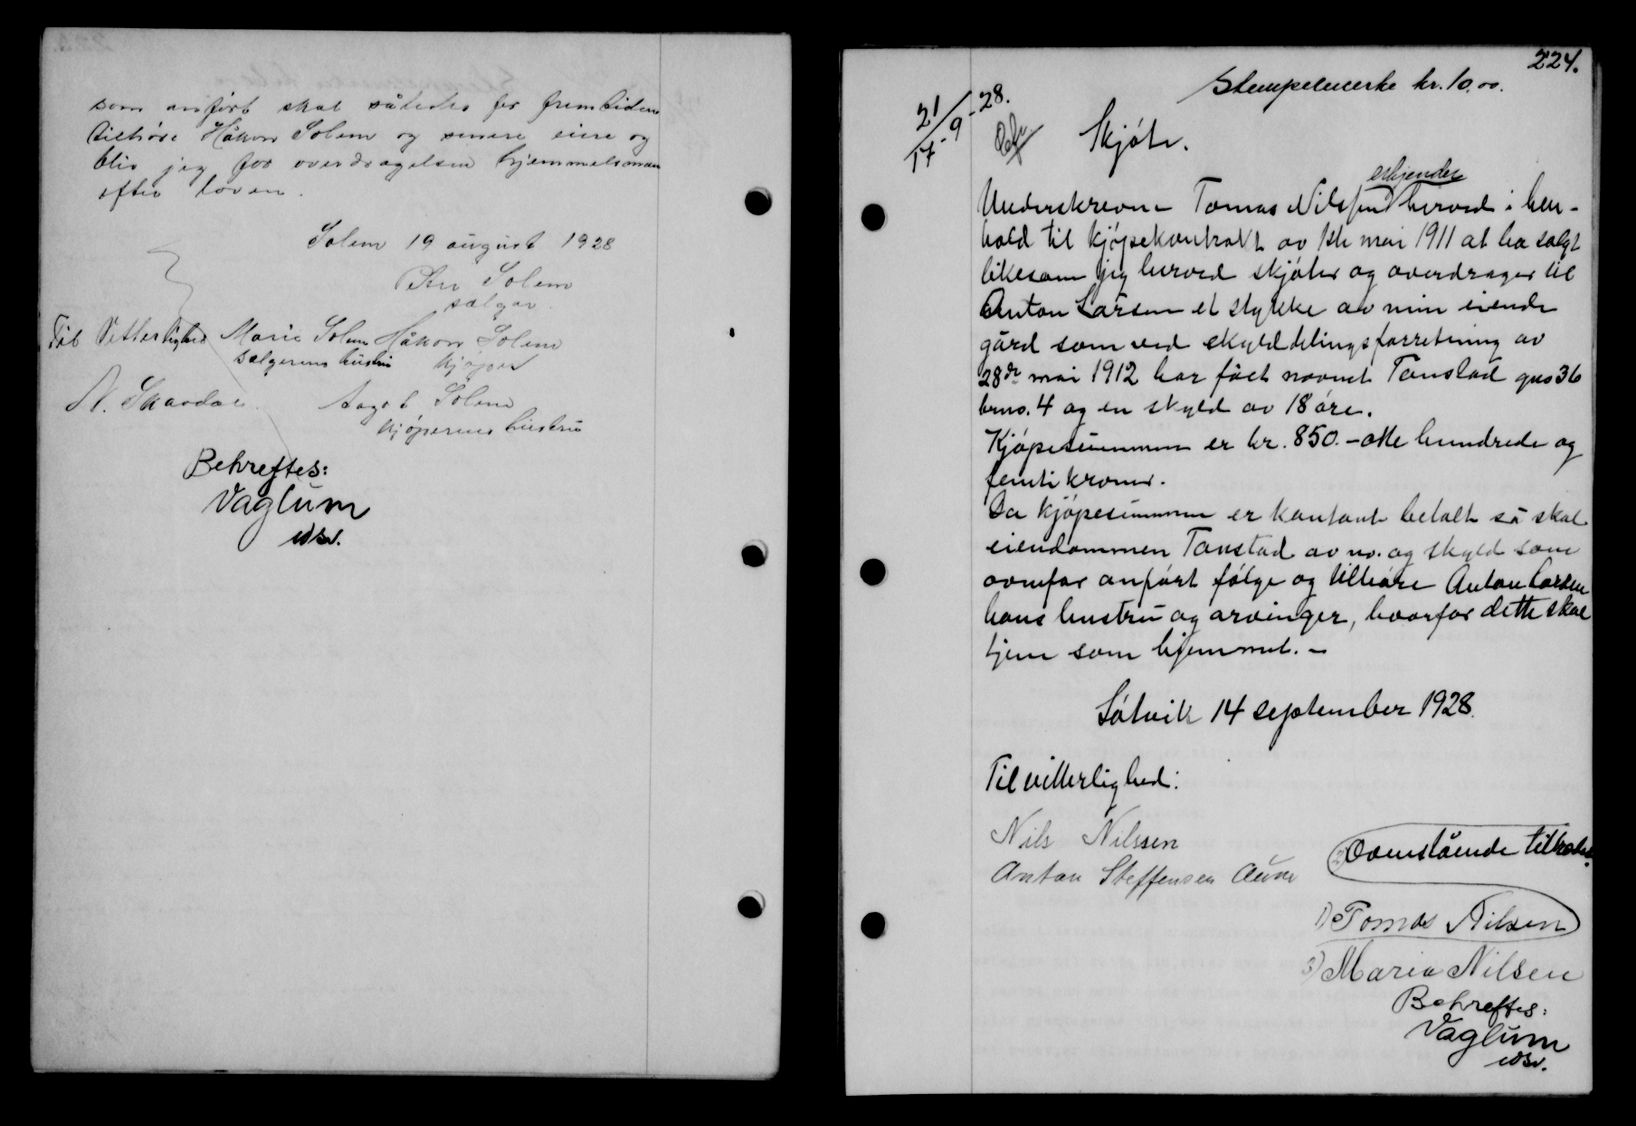 som anført skal således for fremtiden
tilhøre Håkon Solem og senere eiere og
blir jeg for overdragelsen hjemmelsman
efter loven.
Solem 19 august 1928
Peter Solem
sælger.
Til Vitterlighed Marie Solem Håkon Solem
Sælgerens hustru kjøper
Aagot Solem
kjøperens hustru
Bekreftes:
Vaglum
224.
Stempelmerke kr. 10.00.
21/9-28.
17
Skjøte.
erkjender
Underskrevne Tomas Nilsen herved i hen-
hold til kjøpekontrakt av 1ste mai 1911 at ha solgt
likesom jeg herved skjøter og overdrager til
Anton Larsen et stykke av min eiende
gård som ved skylddelingsforretning av
28de mai 1912 har fået navnet Tanstad gno 36
brno. 4 og en skyld av 18 øre.
Kjøpesummen er kr. 850.- otte hundrede og
femti kroner.
Da kjøpesummen er kontant betalt så skal
eiendommen Tanstad av no. og skyld som
ovenfor anført følge og tilhøre Anton Larsen
hans hustru og arvinger, hvorfor dette skal
tjene som hjemmel. -
Såtvik 14 september 1928.
Til vitterlighed:
Nils Nilssen
Anton Steffensen Aune
2) Ovenstående
1) Tomas Nilsen
3) Maria Nilsen
Bekreftes:
Vaglum